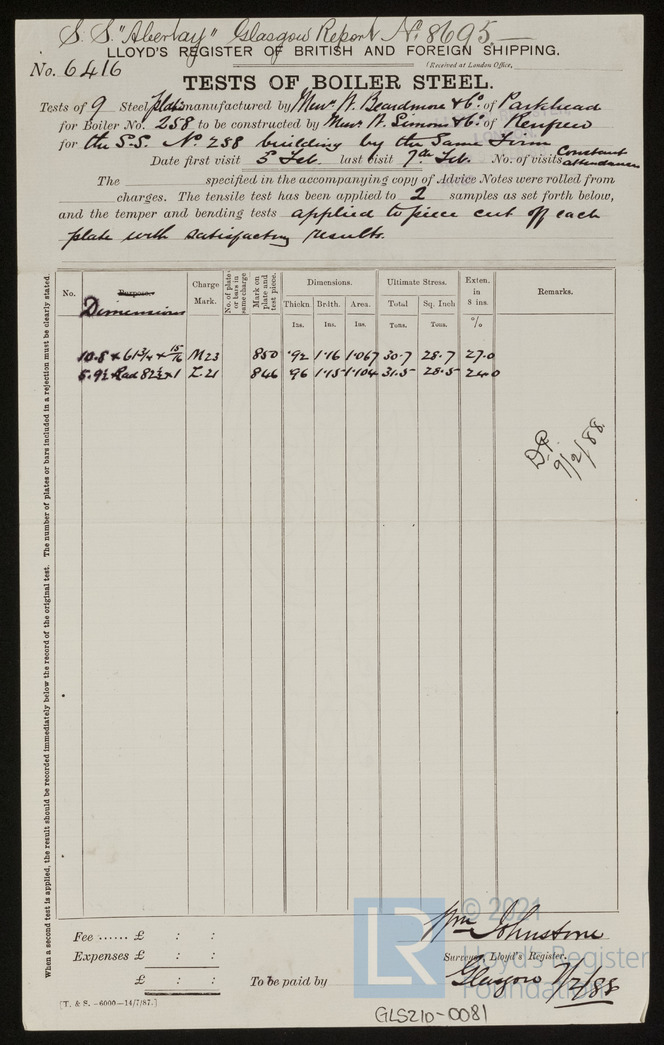 S. S. "Abertay" Glasgow Report No. 8695.
LLOYD'S REGISTER OF BRITISH AND FOREIGN SHIPPING.
No. 6416
(Received at London Office,
TESTS OF BOILER STEEL.
Tests of 9 Steel plates manufactured by Messrs. W. Beardmore & Co. of Parkhead
for Boiler No. 258 to be constructed by Messrs. W. Simons & Co. of Renfrew
for the S.S. No. 258 building by the Same Firm
Date first visit 5 Feb. last visit 7th Feb. No. of visits Constant attendance
The specified in the accompanying copy of Advice Notes were rolled from
charges. The tensile test has been applied to 2 samples as set forth below,
and the temper and bending tests applied to piece cut off each
plate with satisfactory results.
When a second test is applied, the result should be recorded immediately below the record of the original test. The number of plates or bars included in a rejection must be clearly stated.
No. Purpose. Charge Mark. No. of plates or bars in same charge Mark on plate and test piece. Dimensions. Ultimate Stress. Exten. in 8 ins. Remarks.
Dimensions
Thickn Br'dth. Area. Total Sq. Inch
Ins. Ins. Ins. Tons. Tons. %
10.8 x 61 3/4 x 15/16 M23 850 .92 1.16 1.067 30.7 28.7 27.0
5.9½ Rad 82½ x 1 Z.21 846 .96 1.15 1.104 31.5 28.5 24.0
9/2/88
Fee ...... £ : :
Expenses £ : :
£ : :
To be paid by
Wm Johnstone
Surveyor, Lloyd's Register.
Glasgow 7/2/88
[T. & S. -6000-14/7/87.]
GLS210-0081
LR © 2021
Lloyd's Register
Foundation